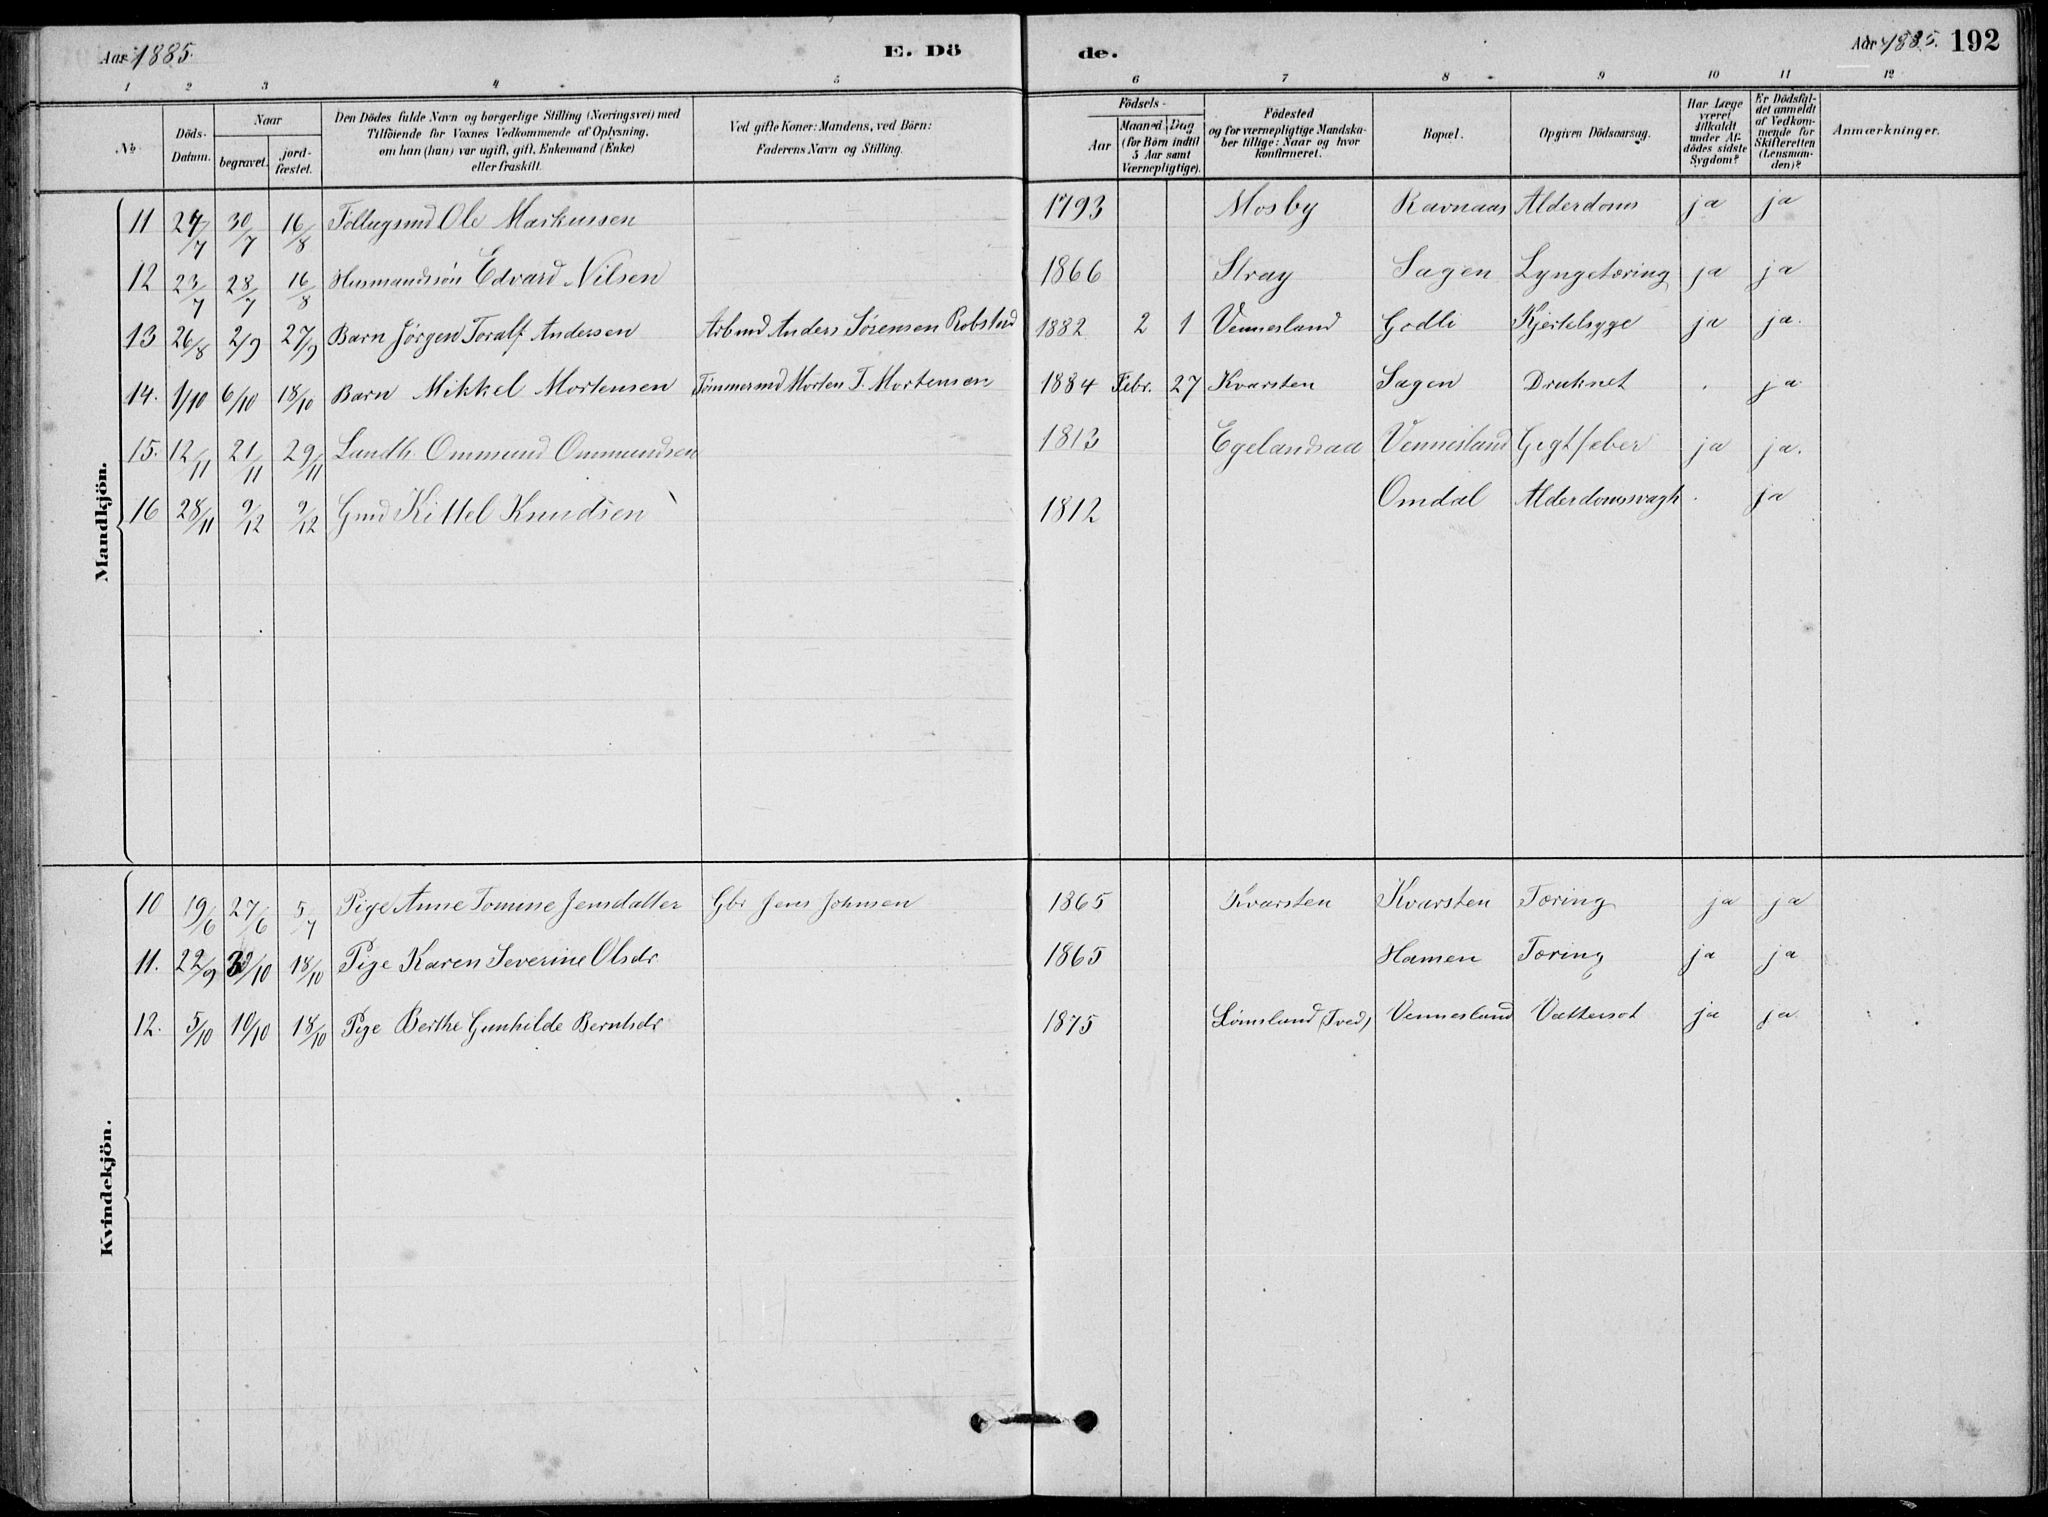 Aar 1885. E. Döde. Aar 1885. 192
1 2 3 4 5 6 7 8 9 10 11 12
No. Döds-Datum. Naar begravet. jord-fæstet. Den Dödes fulde Navn og borgerlige Stilling (Næringsvei) med Tilföiende for Voxnes Vedkommende af Oplysning, om han (hun) var ugift, gift, Enkemand (Enke) eller fraskilt. Ved gifte Koner: Mandens, ved Börn: Faderens Navn og Stilling. Födsels- Aar Maaned Dag (for Börn indtil 5 Aar samt Værnepligtige). Födested og for værnepligtige Mandskaber tillige: Naar og hvor konfirmeret. Bopæl. Opgiven Dödsaarsag. Har Læge været tilkaldt under Afdödes sidste Sygdom? Er Dödsfaldet anmeldt af Vedkommende for Skifteretten (Lensmanden)? Anmærkninger.
Mandkjön.
11 24/7 30/7 16/8 Ole Markussen 1793 Mosby Ravnaas Alderdoms ja ja
12 23/7 28/7 16/8 Husmandssön Edvard Nilsen 1866 Stray Sagen Lyngetæring ja ja
13 26/8 2/9 27/9 Barn Jörgen Toralf Andersen Arbmd Anders Sörensen Robstad 1882 2 1 Vennesland Godli Kjertelsyge ja ja.
14. 1/10 6/10 18/10 Barn Mikkel Mortensen Tömmermd Morten T. Mortensen 1884 Febr. 27 Kvarsten Sagen Druknet . ja
15. 12/11 21/11 29/11 Landh. Ommund Ommundsen 1813 Egelandsaa Vennesland Gigtfeber ja ja.
16 28/11 9/12 9/12 Gmd Kittel Knudsen 1812 Omdal Alderdomssvagh . ja
Kvindekjön.
10 19/6 27/6 5/7 Pige Anne Tomine Jensdatter Gbr Jens Johnsen 1865 Kvarsten Kvarsten Tæring ja ja
11. 22/9 3/10 18/10 Pige Karen Severine Olsdr 1865 Hamen Tæring ja ja
12. 5/10 10/10 18/10 Pige Berthe Gunhilde Berntsdr 1875 Lömsland (Tved) Vennesland Vattersot ja ja.